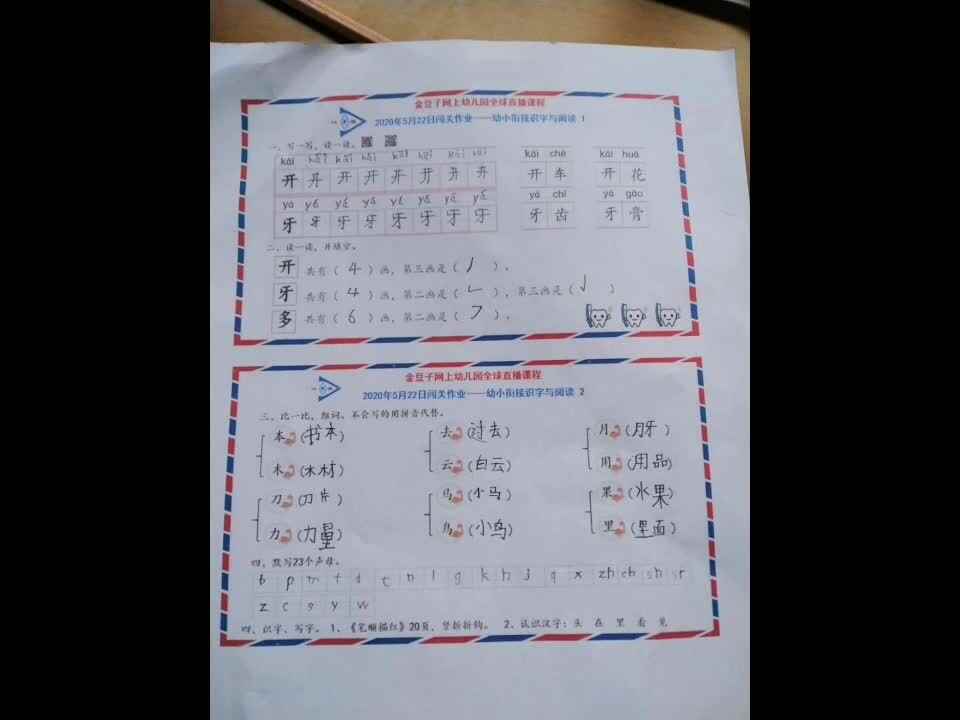 金豆子网上幼儿园全球直播课程
2020年5月22日闯关作业——幼小衔接识字与阅读 1
一、写一写，读一读。
kāi
开 开 开 开 开 开 开 开
yá yá yá yá yá yá yá yá
牙 牙 牙 牙 牙 牙 牙 牙
kāi chē kāi huā
开 车 开 花
yá chǐ yá gāo
牙 齿 牙 膏
二、读一读，并填空。
开 共有（ 4 ）画，第三画是（ 丿 ）。
牙 共有（ 4 ）画，第二画是（ ㄥ ），第三画是（ 亅 ）
多 共有（ 6 ）画，第二画是（ フ ）。
金豆子网上幼儿园全球直播课程
2020年5月22日闯关作业——幼小衔接识字与阅读 2
三、比一比，组词。不会写的用拼音代替。
本（书本） 去（过去） 月（月牙）
木（木材） 云（白云） 用（用品）
刀（刀片） 马（小马） 果（水果）
力（力量） 鸟（小鸟） 里（里面）
四、默写23个声母。
b p m f d t n l g k h j q x zh ch sh r
z c s y w
四、识字、写字。 1、《笔顺描红》20页，竖折折钩。 2、认识汉字：头 在 里 看 见